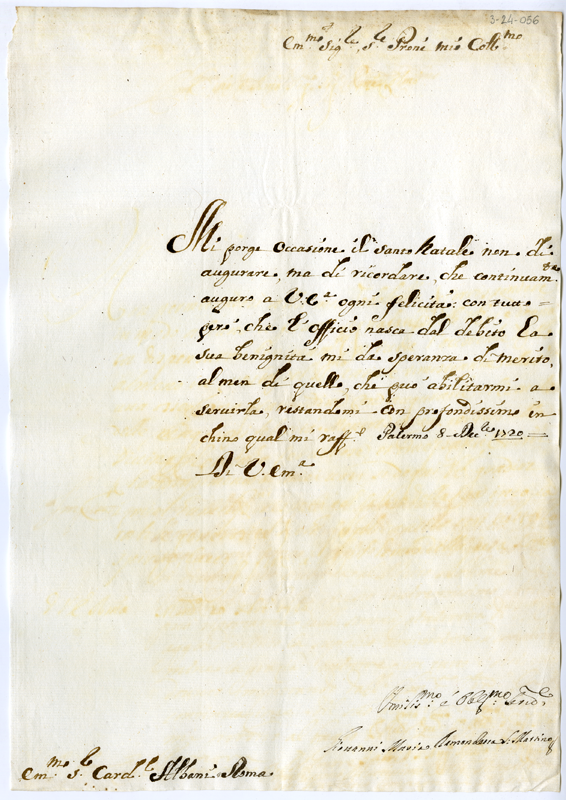 3-24-056
Em.mo Sig.re, s.re Prone mio Coll.mo
Mi porge occasione il santo Natale non di
augurare, ma di ricordare, che continuam.te
auguro a V. E.a ogni felicità: con tutto=
però, che l'officio nasca dal debito La
sua benignità mi da speranza di merito,
al men di quello, che può abilitarmi a
servirla, restandomi con profondissimo in
chino qual mi raff.o Palermo 8 Xbre 1720=
Di V. Em.a
Umilis.mo è Obblig.mo Ser.e
Giovanni Maria S. Martino
Em.mo s.r Card.le Albani Roma